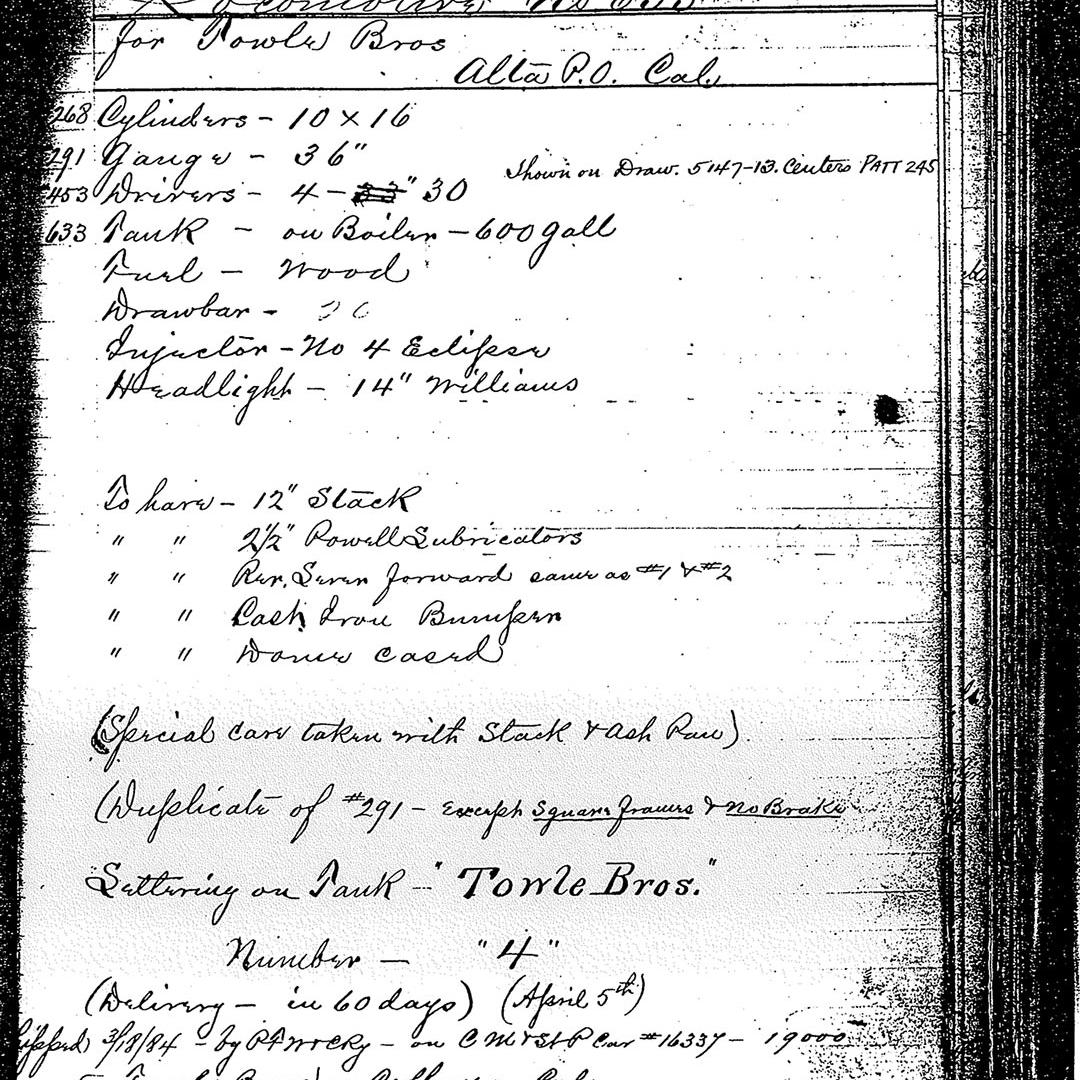 Locomotive No
for Towle Bros
Alta P.O. Cal.
268 Cylinders - 10 x 16
291 Gauge - 36"
Shown on Draw. 5147-13. Centers PATT 245
453 Drivers - 4 - 33" 30
633 Tank - on Boiler - 600 gall
Fuel - Wood
Drawbar -
Injector - No 4 Eclipse
Headlight - 14" Williams
To have - 12" Stack
" " 2½" Powell Lubricators
" " Rev. Lever forward same as #1 & #2
" " Cast Iron Bumper
" " Dome cased
(Special care taken with Stack & Ash Pan)
(Duplicate of #291 - except Square Frames & No Brake
Lettering on Tank - "Towle Bros."
Number - "4"
(Delivery - in 60 days) (April 5th)
Shipped 3/18/84 - by - on C M & St P Car #16337 - 19000